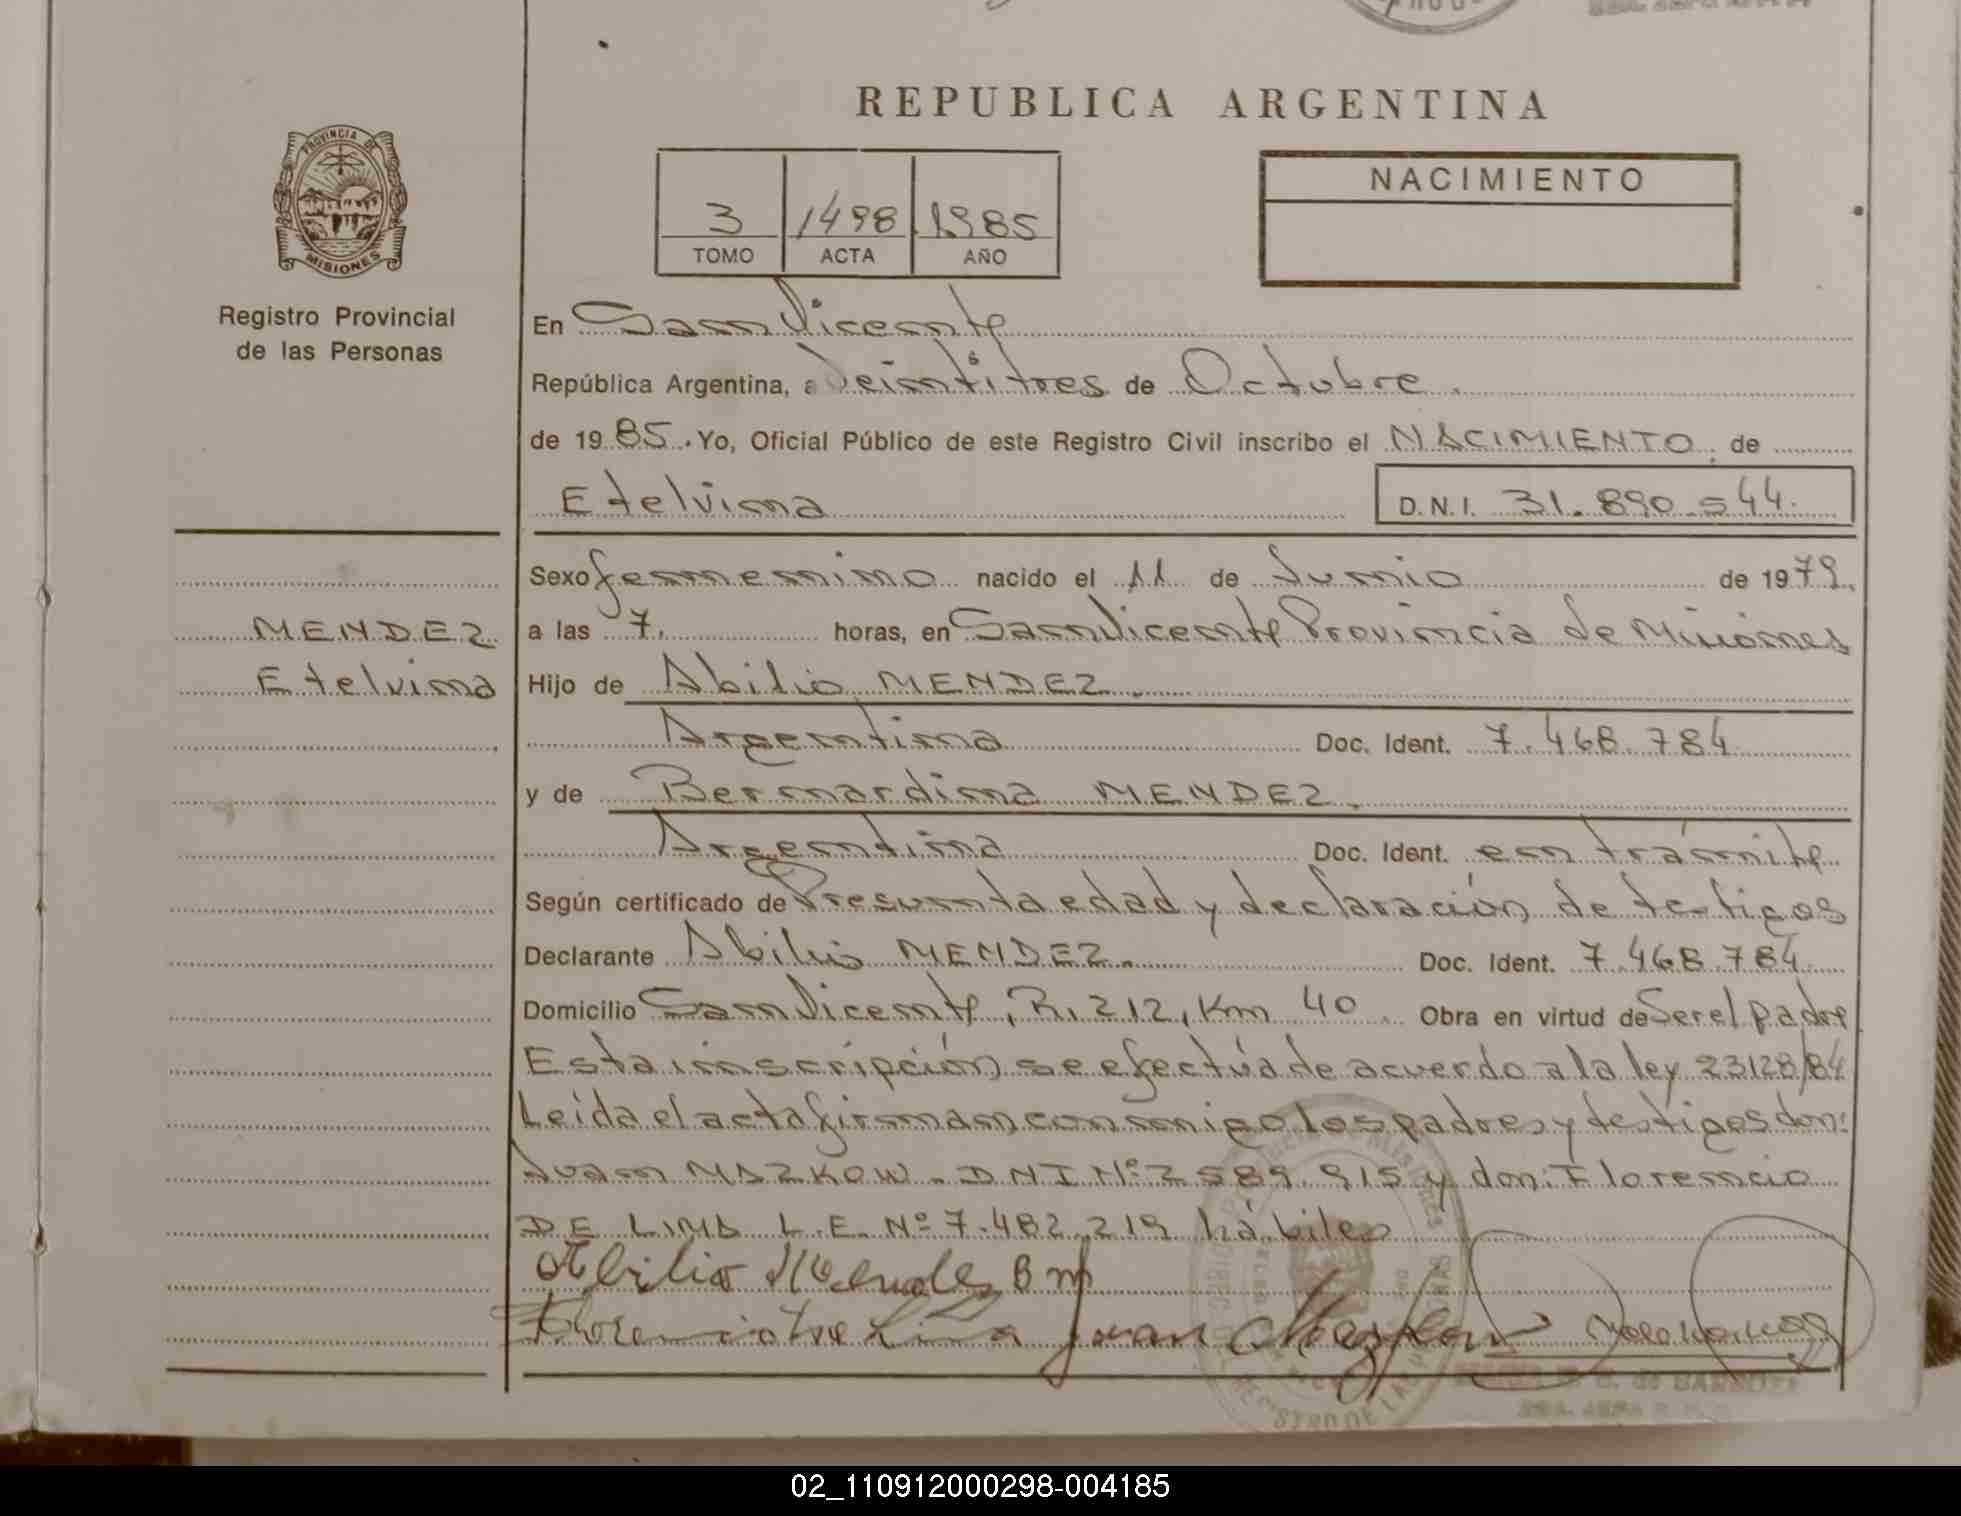 REPUBLICA ARGENTINA
PROVINCIA DE
MISIONES
Registro Provincial
de las Personas
3 1498 1985
TOMO ACTA AÑO
NACIMIENTO
En San Vicente
República Argentina, a Veintitres de Octubre.
de 19 85. Yo, Oficial Público de este Registro Civil inscribo el NACIMIENTO, de
Etelvina D.N.I. 31.890.544.
Sexo femenino nacido el 11 de Junio de 1979.
a las 7. horas, en San Vicente Provincia de Misiones
MENDEZ
Etelvina
Hijo de Abilio MENDEZ.
Argentina Doc. Ident. 7.468.784
y de Bernardina MENDEZ.
Argentina Doc. Ident. en trámite
Según certificado de Presunta edad y declaración de testigos
Declarante Abilio MENDEZ. Doc. Ident. 7.468.784
Domicilio San Vicente, R. 212, Km 40 Obra en virtud de Ser el padre
Esta inscripción se efectúa de acuerdo a la ley 23128/84
Leída el acta firman conmigo los padres y testigos don:
Juan MAZKOW - DNI Nº 7.589.915 y don: Florencio
DE LIMA L.E. Nº 7.482.219 hábiles
Abilio Mendes B m
Florencio De Lima Juan
02_110912000298-004185